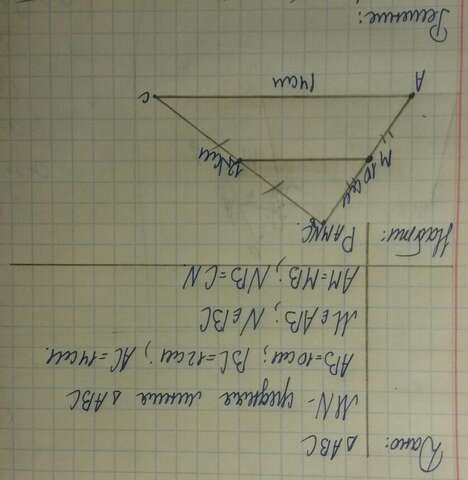 Дано:
△ABC
MN - средняя линия △ABC
AB=10см; BC=12см; AC=14см.
M∈AB; N∈BC
AM=MB; NB=CN.
Найти:
PAMNC.
10см
M
12см
A
14см
C
Решение: